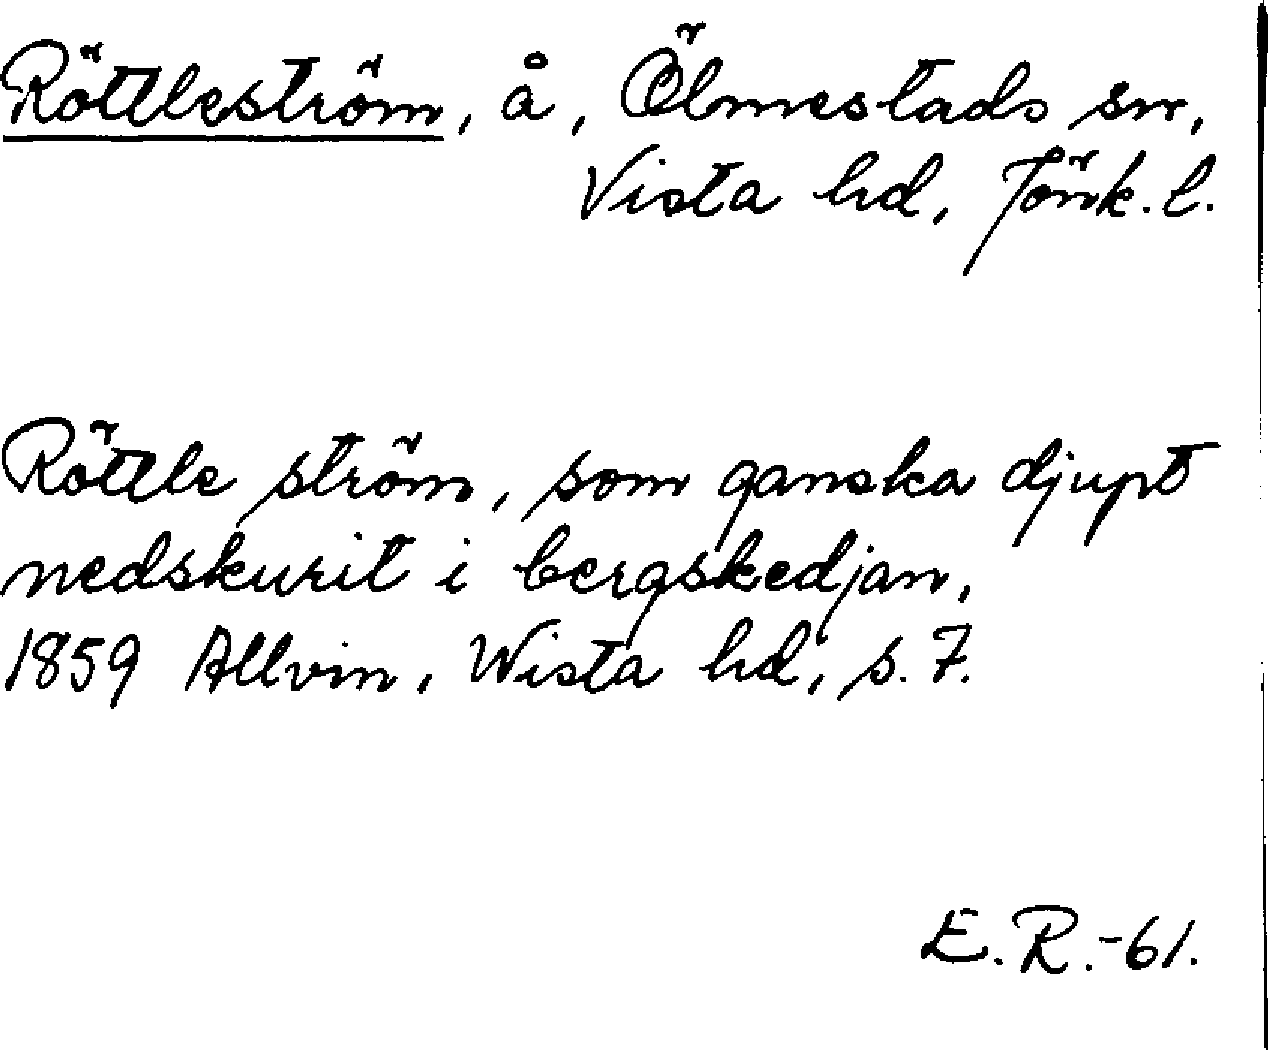 Röttleström, å, Ölmestads sn,
Vista hd, Jönk. l.
Röttle ström, som ganska djupt
nedskurit i bergskedjan,
1859 Allvin, Wista hd, s. 7.
E. R. -61.